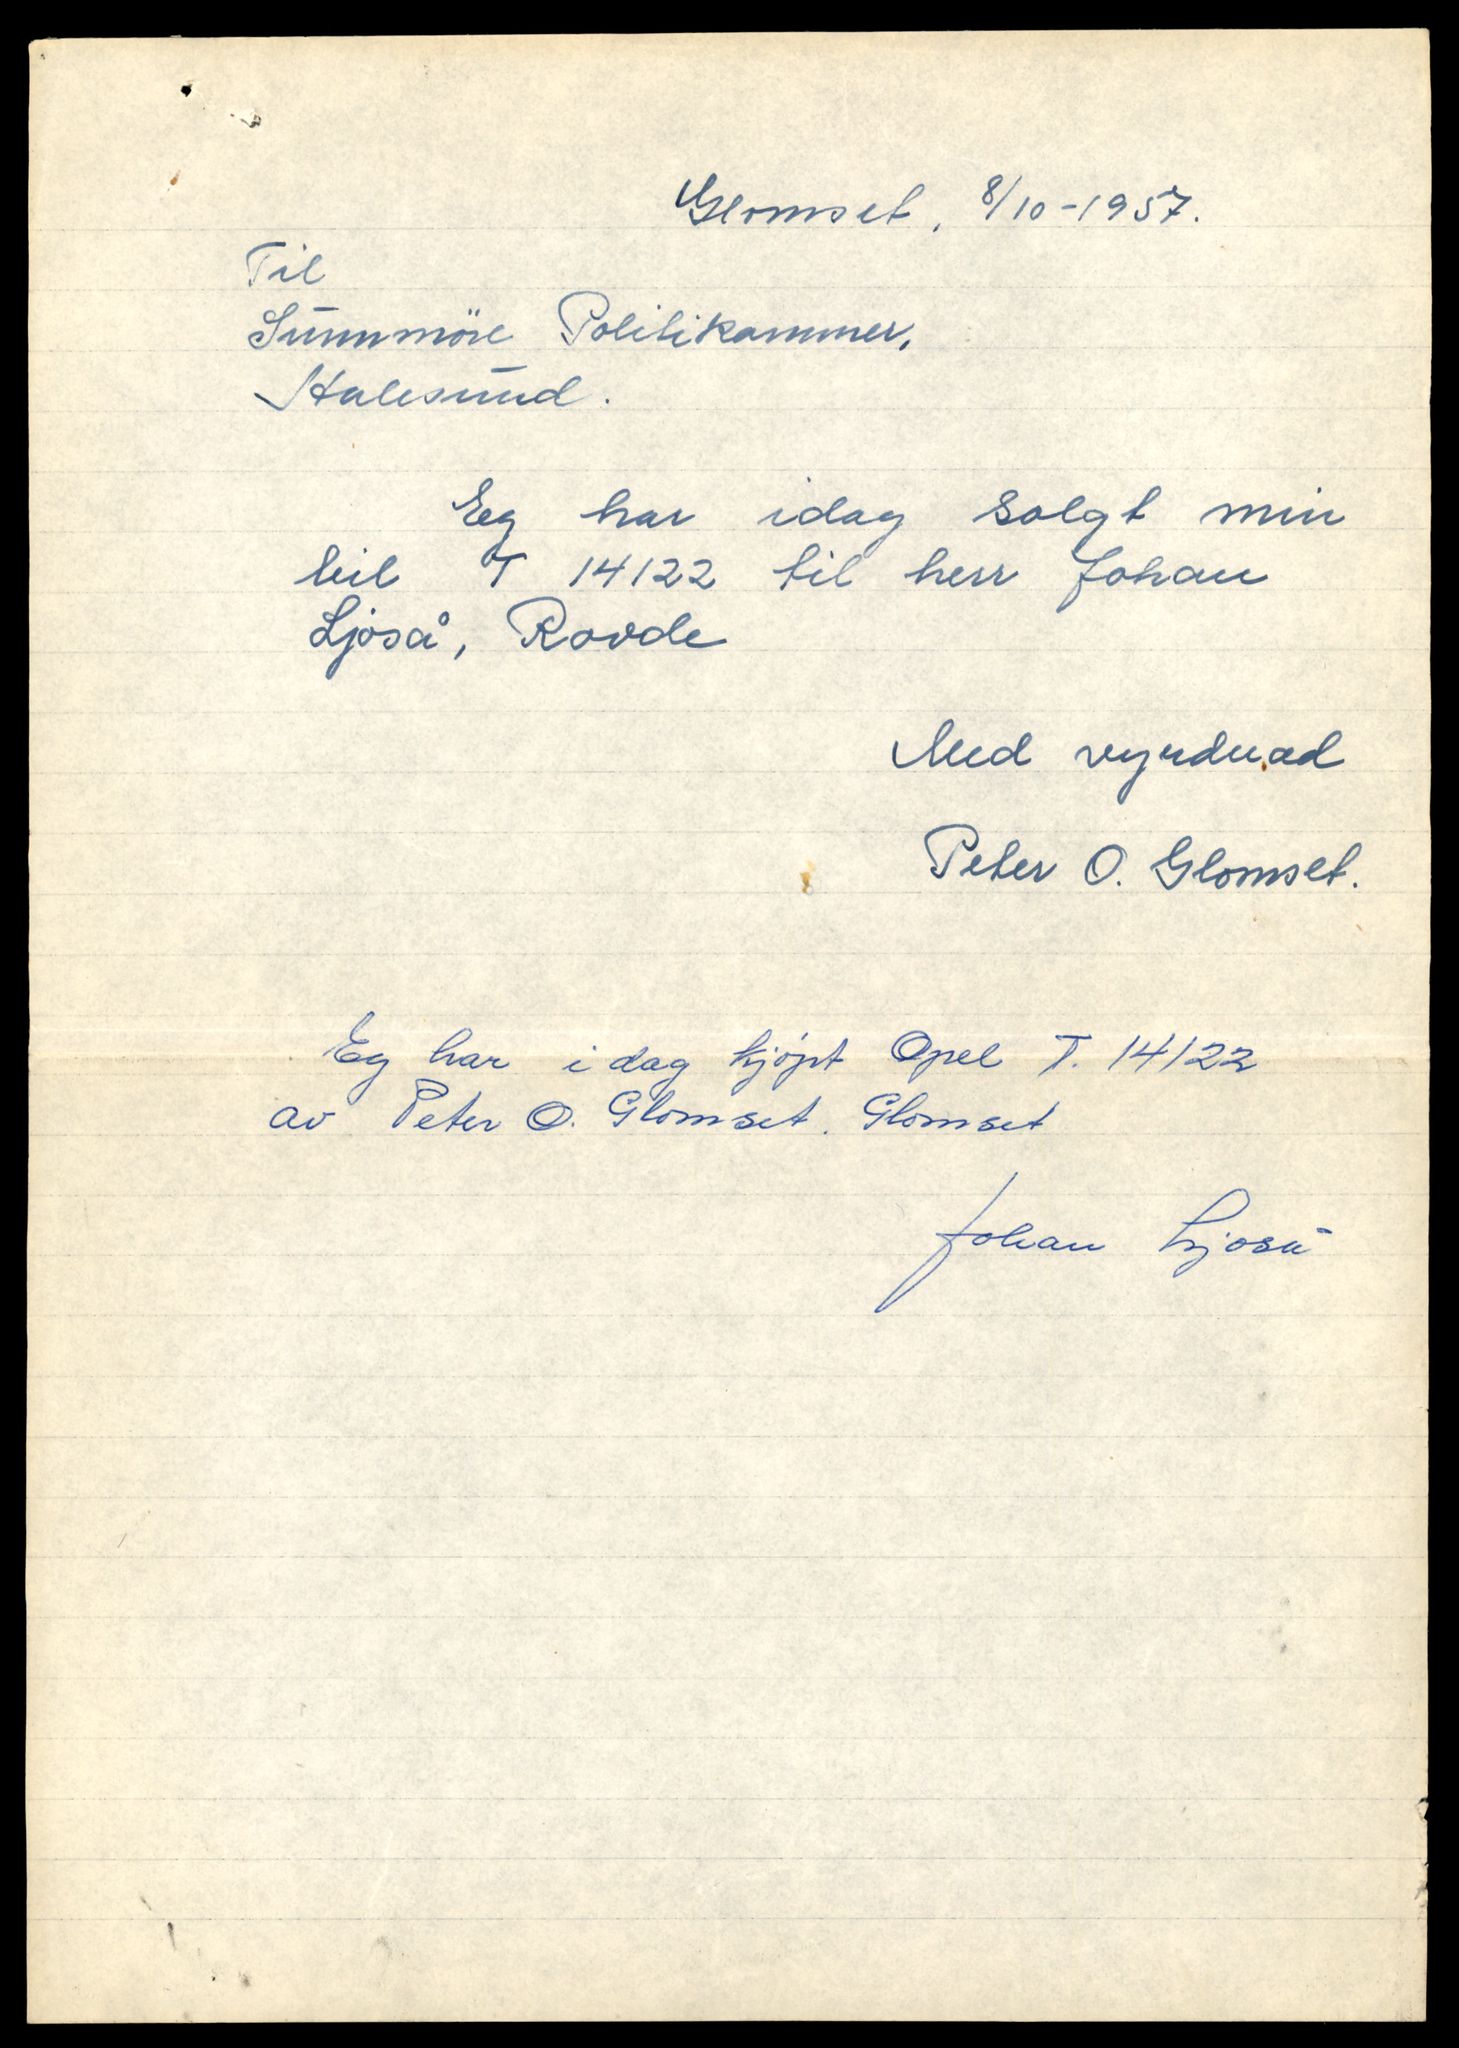 Glomset, 8/10-1957.
Til
Sunnmöre Politikammer,
Aalesund.
Eg har idag solgt min
bil T 14122 til herr Johan
Ljoså, Rovde
Med vyrdnad
Peter O. Glomset.
Eg har i dag kjøpt Opel T. 14122
av Peter O. Glomset. Glomset
Johan Ljoså